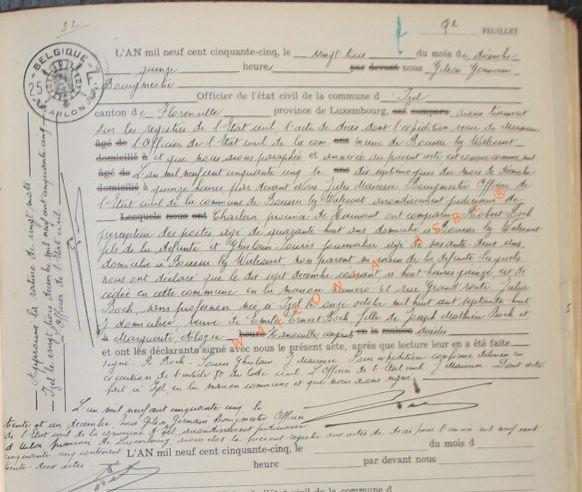 32
9e FEUILLET
BELGIQUE
ARLON
25
L'AN mil neuf cent cinquante-cinq, le vingt trois du mois de décembre
quinze heure par devant nous Gilson Germain
Bourgmestre
Officier de l'état civil de la commune d Izel
canton de Florenville province de Luxembourg, ont comparu nous
sur les registres de l'Etat civil l'acte de décès dont l'expédition
âgé de l'Officier de l'Etat civil de la com ans mune de Boussu lez Walcourt
domicilié à et que nous avons paraphée et annexée au présent acte est conçue comme suit
âgé de L'an mil neuf cent cinquante cinq le ans dix septième jour du mois de décembre
domicilié à quinze heures par devant nous Jules Marousé Bourgmestre Officier de
l'Etat civil de la commune de Boussu lez Walcourt arrondissement judiciaire de
Lesquels nous ont Charleroi province de Hainaut ont comparu Robert Poch
percepteur des postes âgé de quarante huit ans domicilié à Boussu lez Walcourt
fils de la défunte et Ghislain Louis journalier âgé de soixante deux ans
domicilié à Boussu lez Walcourt, non parent voisin de la défunte lesquels
nous ont déclaré que le dix sept décembre courant à huit heures quinze, est dé
cédée en cette commune en la maison numéro 33 rue Grand'route Julie
Poch, sans profession née à Izel le onze octobre mil huit cent septante huit
y domiciliée, veuve de Emile Ernest Poch fille de Joseph Mathieu Poch et
à Marguerite heure
et ont les déclarants signé avec nous le présent acte, après que lecture leur en a été faite
signé R. Poch Louis Ghislain J Marousé Pour expédition conforme délivrée en
exécution de l'article 80 du Code civil L'Officier de l'Etat civil J Marousé Dont acte
fait à Izel, en la maison commune et que nous avons signé
Approuvé la rature de vingt mots
Izel le vingt trois décembre mil neuf cent cinquante cinq
L'Officier de l'Etat civil
L'an mil neuf cent cinquante cinq le
trente et un décembre, nous Gilson Germain Bourgmestre Officier
de l'Etat civil de la commune d'Izel arrondissement judiciaire
d'Arlon province de Luxembourg avons clos le présent registre aux actes de décès pour l'année mil neuf cent
cinquante cinq contenant
trente dont acte
L'AN mil neuf cent cinquante-cinq, le du mois d
heure par devant nous
Officier de l'état civil de la commune d
WALLONIA ASBL ®